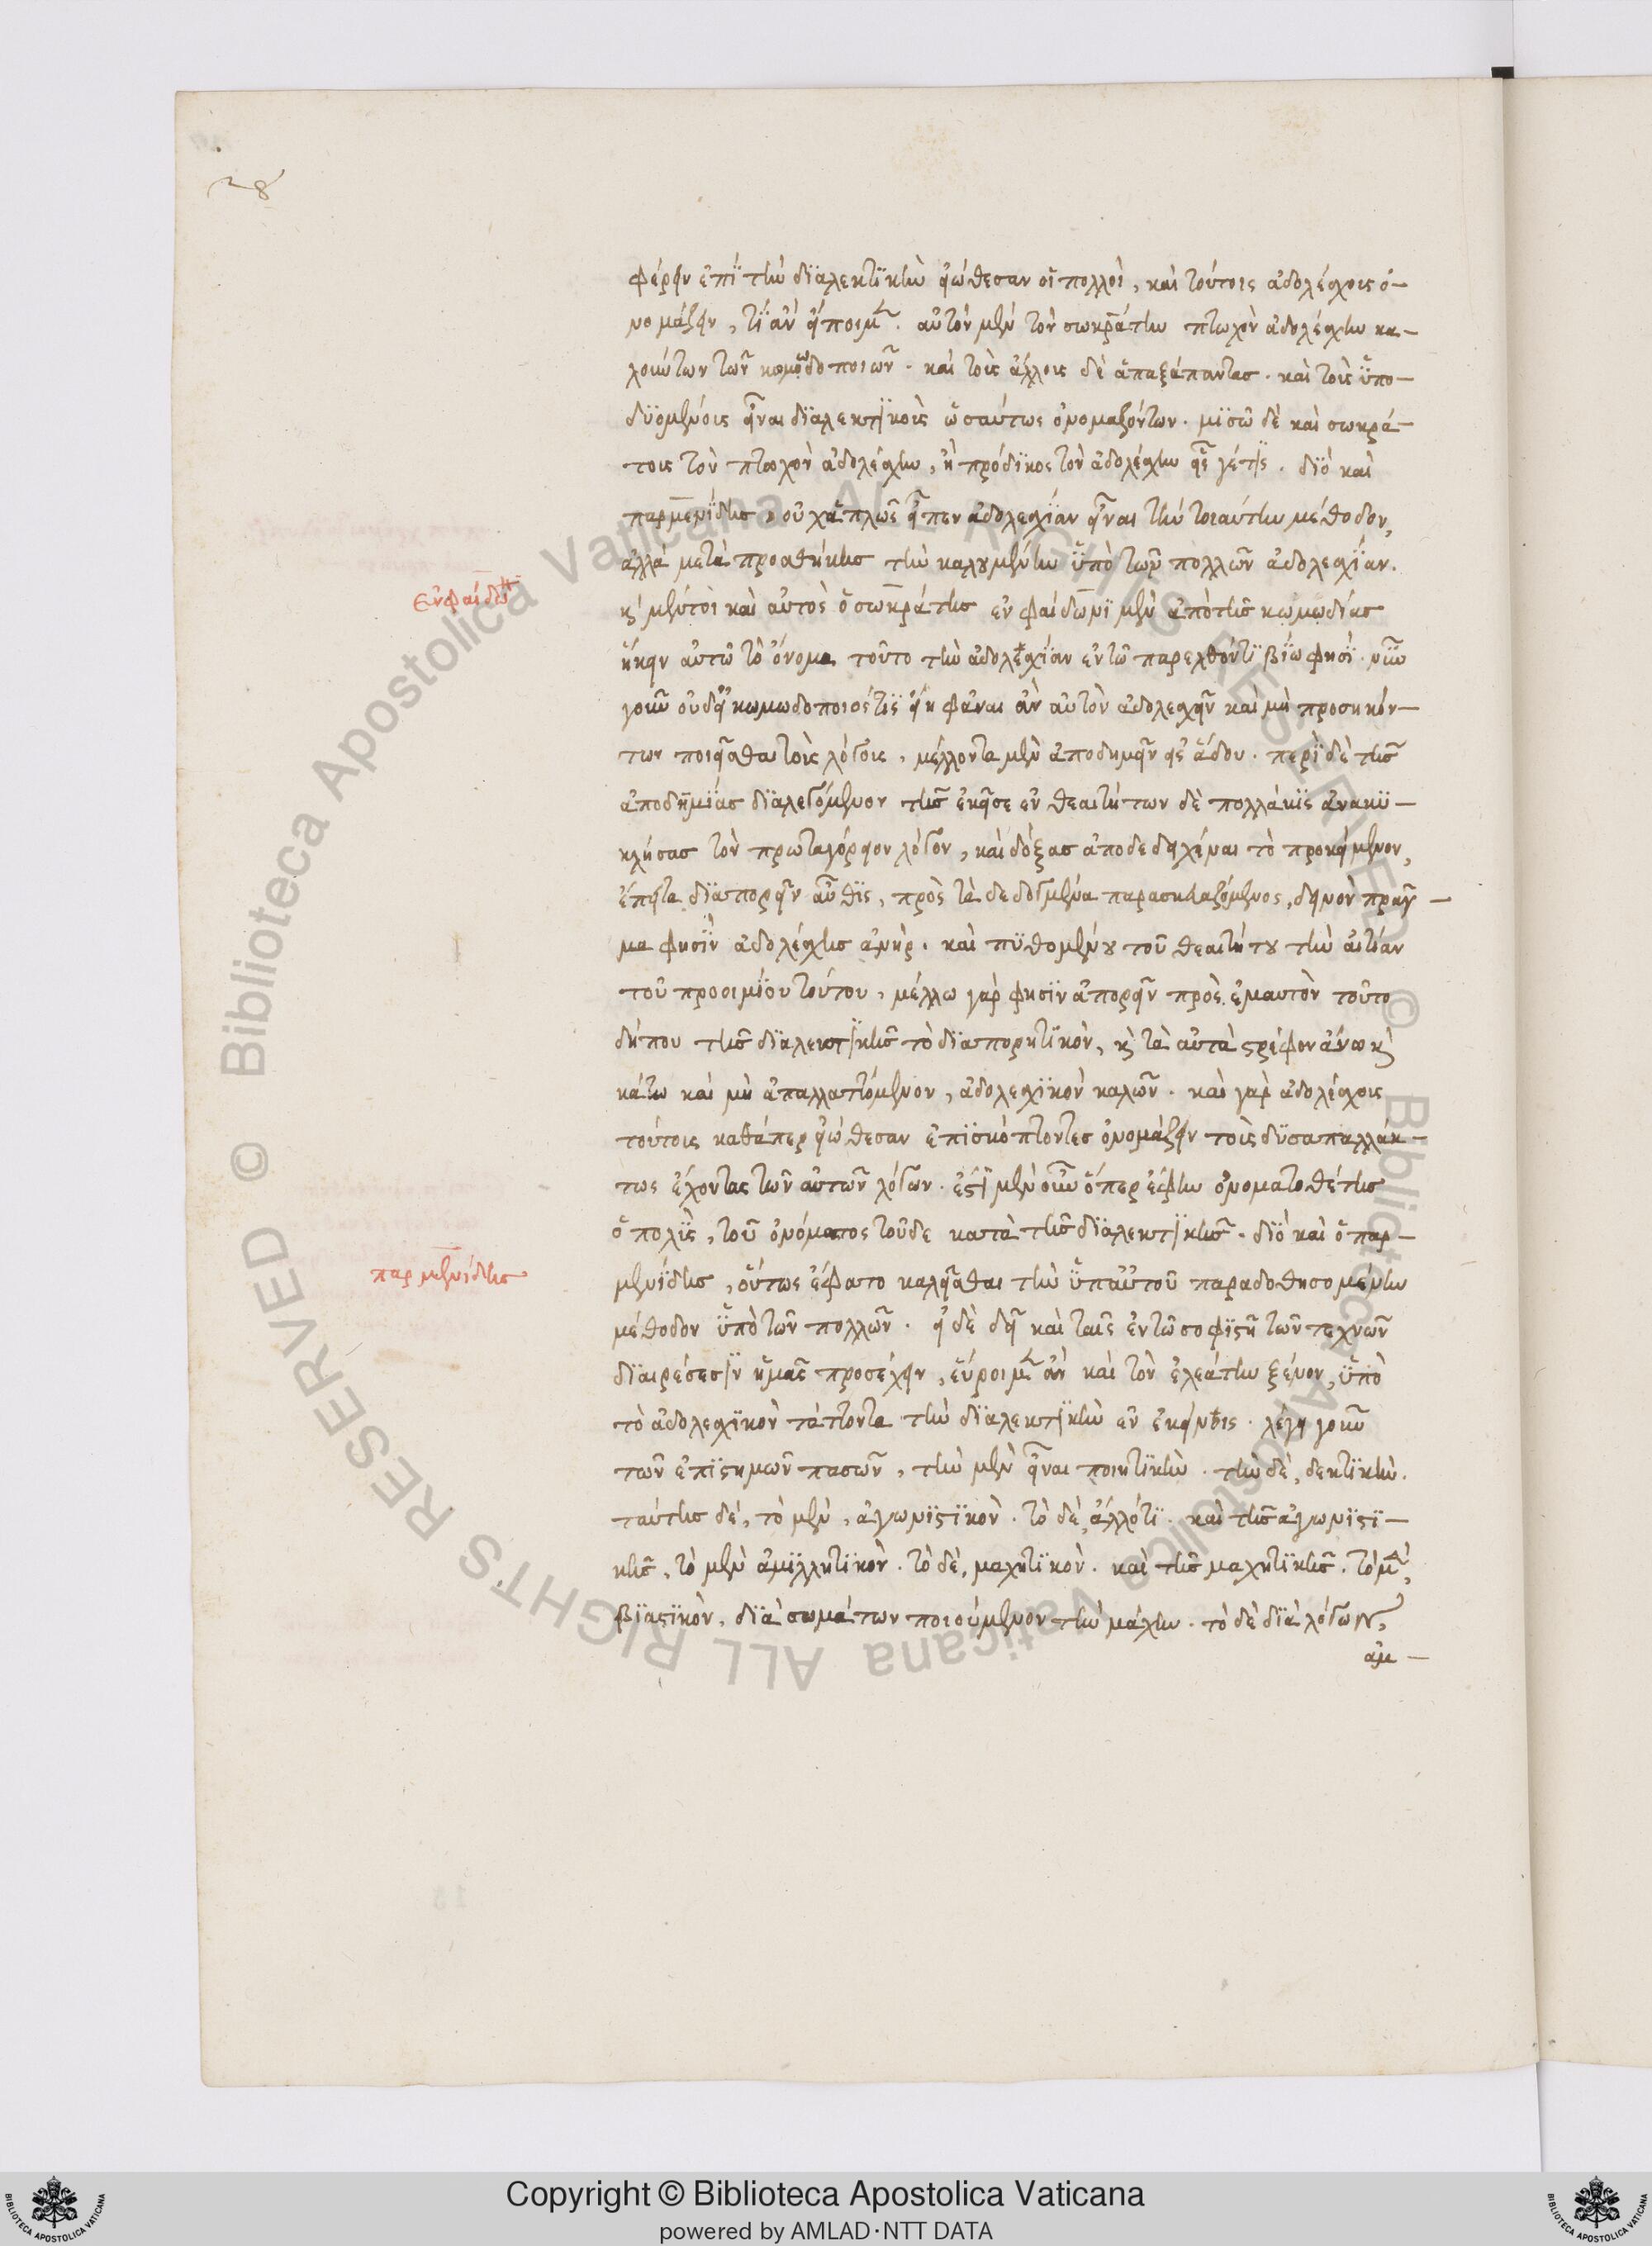 28
φέρειν ἐπὶ τὴν διαλεκτικὴν εἰώθεσαν οἱ πολλοὶ, καὶ τούτοις ἀδολέσχοις ὀ-
νομάζειν, τί ἂν εἴποιμεν. αὐτὸν μὲν τὸν σωκράτην πτωχὸν ἀδολέσχην κα-
λούντων τῶν κωμωδοποιῶν. καὶ τοὶς ἄλλοις δὲ ἁπαξάπαντας. καὶ τοὶς ὑπο-
δυομένοις εἶναι διαλεκτικοὶς ὡσαύτως ὀνομαζόντων. μισῶ δὲ καὶ σωκρά-
τοις τὸν πτωχὸν ἀδολέσχην, ἢ πρόδικος τὸν ἀδολέσχην εἷς γέτις. διὸ καὶ
παρμενίδης, οὐχ ἁπλῶς εἶπεν ἀδολεσχίαν εἶναι τὴν τοιαύτην μέθοδον,
ἀλλὰ μετὰ προσθήκης τὴν καλουμένην ὑπὸ τῶν πολλῶν ἀδολεσχίαν.
κ μέντοι καὶ αὐτὸς ὁ σωκράτης ἐν φαίδωνι μὲν ἀπὸ τῆς κωμωδίας
ἥκειν αὐτῶ τὸ ὄνομα τοῦτο τὴν ἀδολεσχίαν ἐν τῶ παρελθόντι βίω φησὶ. νῦν
γοῦν οὐδ' εἰ κωμωδοποιός τις εἴη φάναι ἂν αὐτὸν ἀδολεσχεῖν καὶ μὴ προσηκόν-
των ποιεῖσθαι τοὶς λόγοις, μέλλοντα μὲν ἀποδημεῖν εἰς ἅδου. περὶ δὲ τῆς
ἀποδημίας διαλεγόμενον τῆς ἐκεῖσε ἐν θεαιτήτων δὲ πολλάκις ἀνακυ-
κλήσας τὸν πρωταγόρειον λόγον, καὶ δόξας ἀποδεδειχέναι τὸ προκείμενον,
ἔπειτα διαπορεῖν αὖθις, πρὸς τὰ δεδογμένα παρασκευαζόμενος, δεινὸν πραγ-
μα φησὶν ἀδολέσχης ἀνὴρ. καὶ πυθομένου τοῦ θεαιτήτου τὴν αἰτίαν
τοῦ προοιμίου τούτου, μέλλω γὰρ φησὶν ἀπορεῖν πρὸς ἐμαυτὸν τοῦτο
δήπου τῆς διαλεκτικῆς τὸ διαπορητικὸν, κ τὰ αὐτὰ στρέφον ἄνω κ
κάτω καὶ μὴ ἀπαλλαττόμενον, ἀδολεσχικὸν καλῶν. καὶ γὰρ ἀδολέσχοις
τούτοις καθάπερ εἰώθεσαν ἐπισκόπτοντες ὀνομάζειν τοὶς δυσαπαλλάκ-
τως ἔχοντας τῶν αὐτῶν λόγων. ἔστι μὲν οὖν ὅπερ ἔφην ὀνοματοθέτης
ὁ πολὶς, τοῦ ὀνόματος τοῦδε κατὰ τῆς διαλεκτικῆς. διὸ καὶ ὁ παρ-
μενίδης, οὕτως ἔφατο καλεῖσθαι τὴν ὑπ' αὐτοῦ παραδοθησομένην
μέθοδον ὑπὸ τῶν πολλῶν. εἰ δὲ δεῖ καὶ ταῖς ἐν τῶ σοφιστῆ τῶν τεχνῶν
διαιρέσεσιν ἡμᾶς προσέχειν, εὕροιμεν ἂν καὶ τὸν ἐλεάτην ξένον, ὑπὸ
τὸ ἀδολεσχικὸν τάττοντα τὴν διαλεκτικὴν ἐν ἐκείνοις. λέγει γοῦν
τῶν ἐπιστημῶν πασῶν, τὴν μὲν εἶναι ποιητικὴν. τὴν δὲ, δεκτικὴν.
ταύτης δὲ, τὸ μὲν, ἀγωνιστικὸν. τὸ δὲ, ἄλλό τι. καὶ τῆς ἀγωνιστι-
κῆς, τὸ μὲν ἀμιλλητικὸν. τὸ δὲ, μαχητικὸν. καὶ τῆς μαχητικῆς. τὸ μὲν,
βιαστικὸν, διὰ σωμάτων ποιούμενον τὴν μάχην. τὸ δὲ διὰ λόγων,
ἀμ-
ἐν φαίδωνι
παρμενίδης